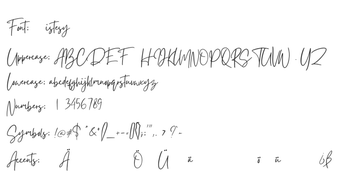 Font: istesy
Uppercase: ABCDEF HIJKLMNOPQRSTUVW YZ
Lowercase: abcdefghijklmnopqrstuvwxyz
Numbers: 1 3456789
Symbols: !@#$ "&'()_
Accents: Ä Ö Ü ä ö ü ß